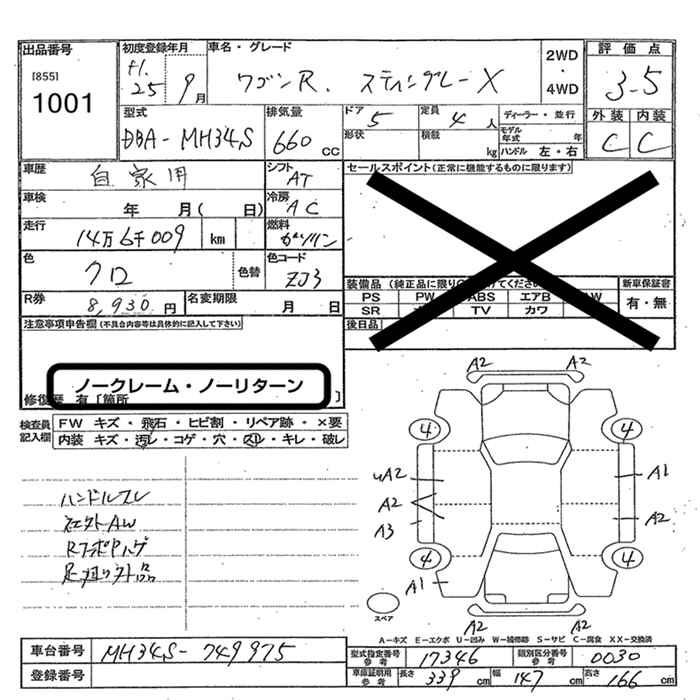 出品番号
[855]
1001
初度登録年月
H.25年 9月
車名・グレード
ワゴンR. スティングレーX
2WD
・
4WD
評価点
3.5
外装 内装
C C
型式
DBA-MH34S
排気量
660 cc
ドア 5
形状
定員 4人
積載 kg
ディーラー・並行
モデル年式 年
ハンドル 左・右
車歴 自家用
シフト AT
車検 年 月( 日)
冷房 AC
走行 14万6千009 km
燃料 ガソリン
色 クロ
色替
色コード ZJ3
R券 8,930円
名変期限 月 日
セールスポイント(正常に機能するものに限ります)
装備品(純正品に限り
けてください
新車保証書
PS PW ABS エアB AW
SR TV カワ
有・無
後日品
注意事項申告欄(不具合内容等は具体的に記入して下さい)
ノークレーム・ノーリターン
修復歴 有〔箇所 〕
検査員記入欄
FW キズ・飛石・ヒビ割・リペア跡・×要
内装 キズ・汚れ・コゲ・穴・スレ・キレ・破レ
ハンドルスレ
社外AW
A2 A2
4 4
uA2 A1
A2 A2
A3
4 4
A1
A2 A2
スペア
A-キズ E-エクボ U-凹み W-補修跡 S-サビ C-腐食 XX-交換済
車台番号 MH34S-749975
登録番号
型式指定番号 参考 17346
類別区分番号 参考 0030
車庫証明用 参考 長さ 339 cm 幅 147 cm 高さ 166 cm